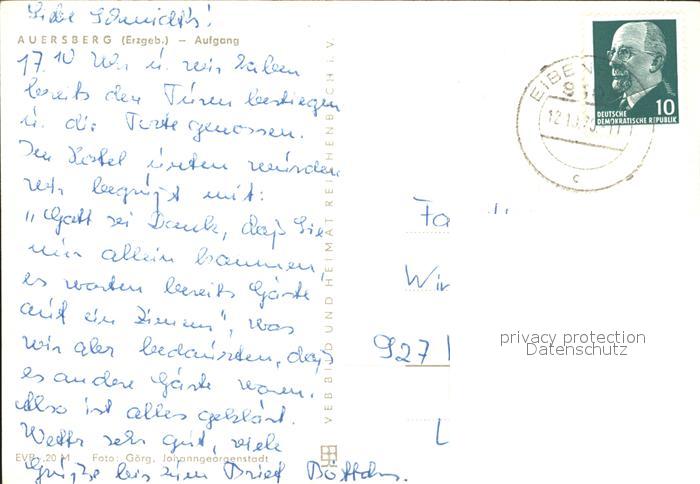 Liebe Schmidt's!
AUERSBERG (Erzgeb.) – Aufgang
17.10 Uhr u. wir haben
bereits den Turm bestiegen
u. die Torte genossen.
Im Hotel unten wurden
wir begrüßt mit:
"Gott sei Dank, daß Sie
nur allein kommen,
es warten bereits Gäste
auf ein Zimmer", was
wir aber bedauerten, daß
es andere Gäste waren.
Also ist alles geklärt.
Wetter sehr gut, viele
EVP: ,20 M Foto: Görg, Johanngeorgenstadt
Grüße bis zum Brief
VEB BILD UND HEIMAT REICHENBACH i. V.
DEUTSCHE
DEMOKRATISCHE REPUBLIK
10
Fa
Wir
927
L
privacy protection
Datenschutz